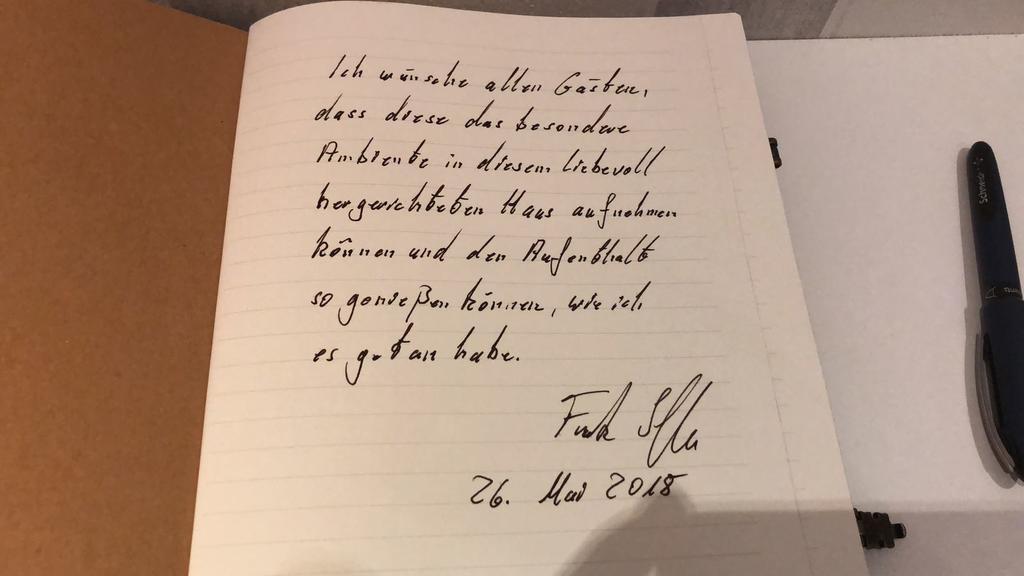 Ich wünsche allen Gästen,
dass diese das besondere
Ambiente in diesem liebevoll
hergerichteten Haus aufnehmen
können und den Aufenthalt
so genießen können, wie ich
es getan habe.
26. Mai 2018
Schneider